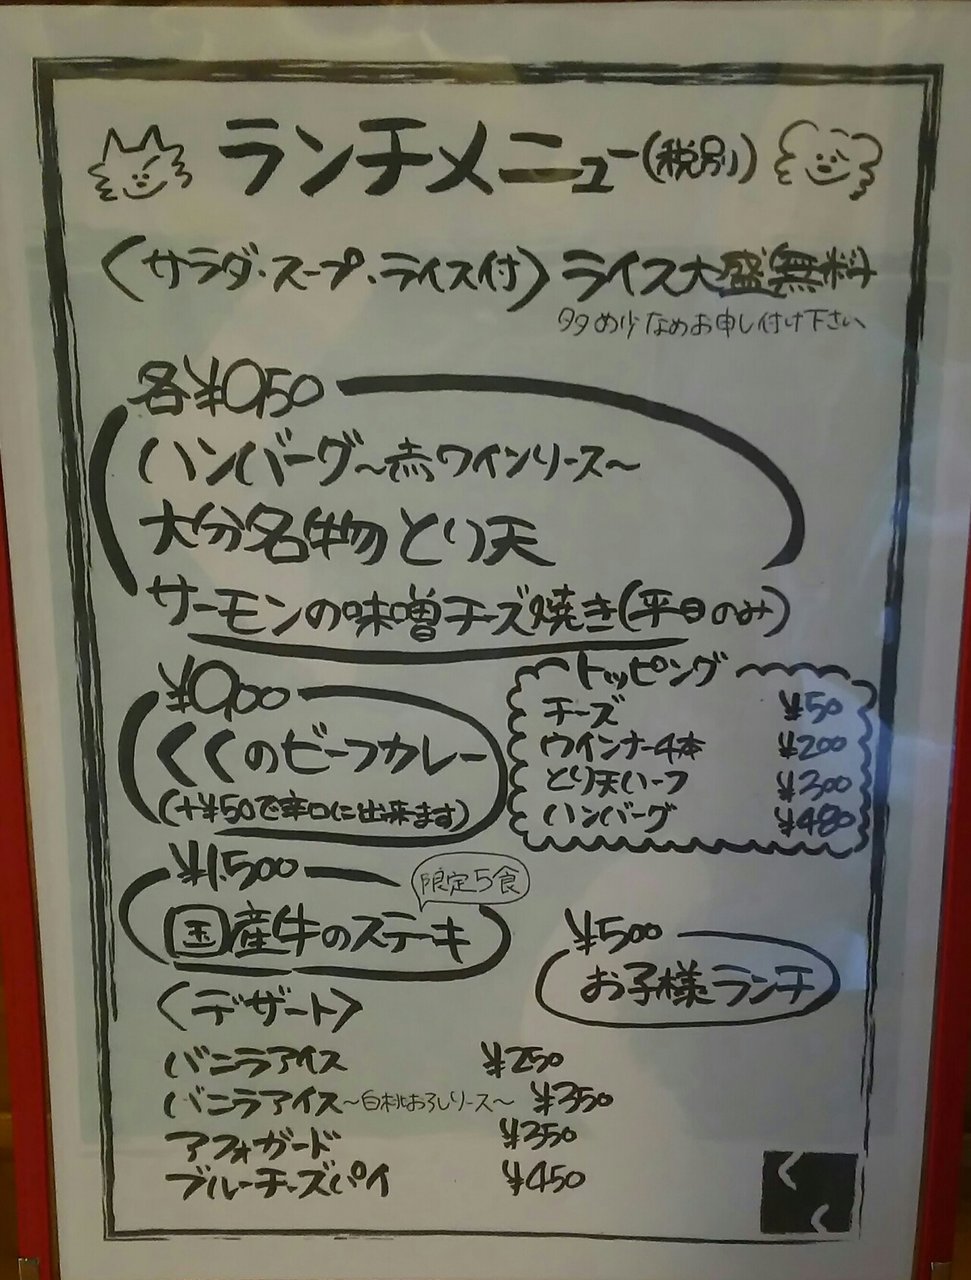 ランチメニュー(税別)
〈サラダ・スープ・ライス付〉ライス大盛無料
多め少なめお申し付け下さい
各¥950
ハンバーグ〜赤ワインソース〜
大分名物とり天
サーモンの味噌チーズ焼き(平日のみ)
¥900
くくのビーフカレー
(+¥50で辛口に出来ます)
トッピング
チーズ ¥50
ウインナー4本 ¥200
とり天ハーフ ¥300
ハンバーグ ¥480
¥1,500
限定5食
国産牛のステーキ
¥500
お子様ランチ
〈デザート〉
バニラアイス ¥250
バニラアイス〜白桃おろしソース〜 ¥350
アフォガード ¥350
ブルーチーズパイ ¥450
くく